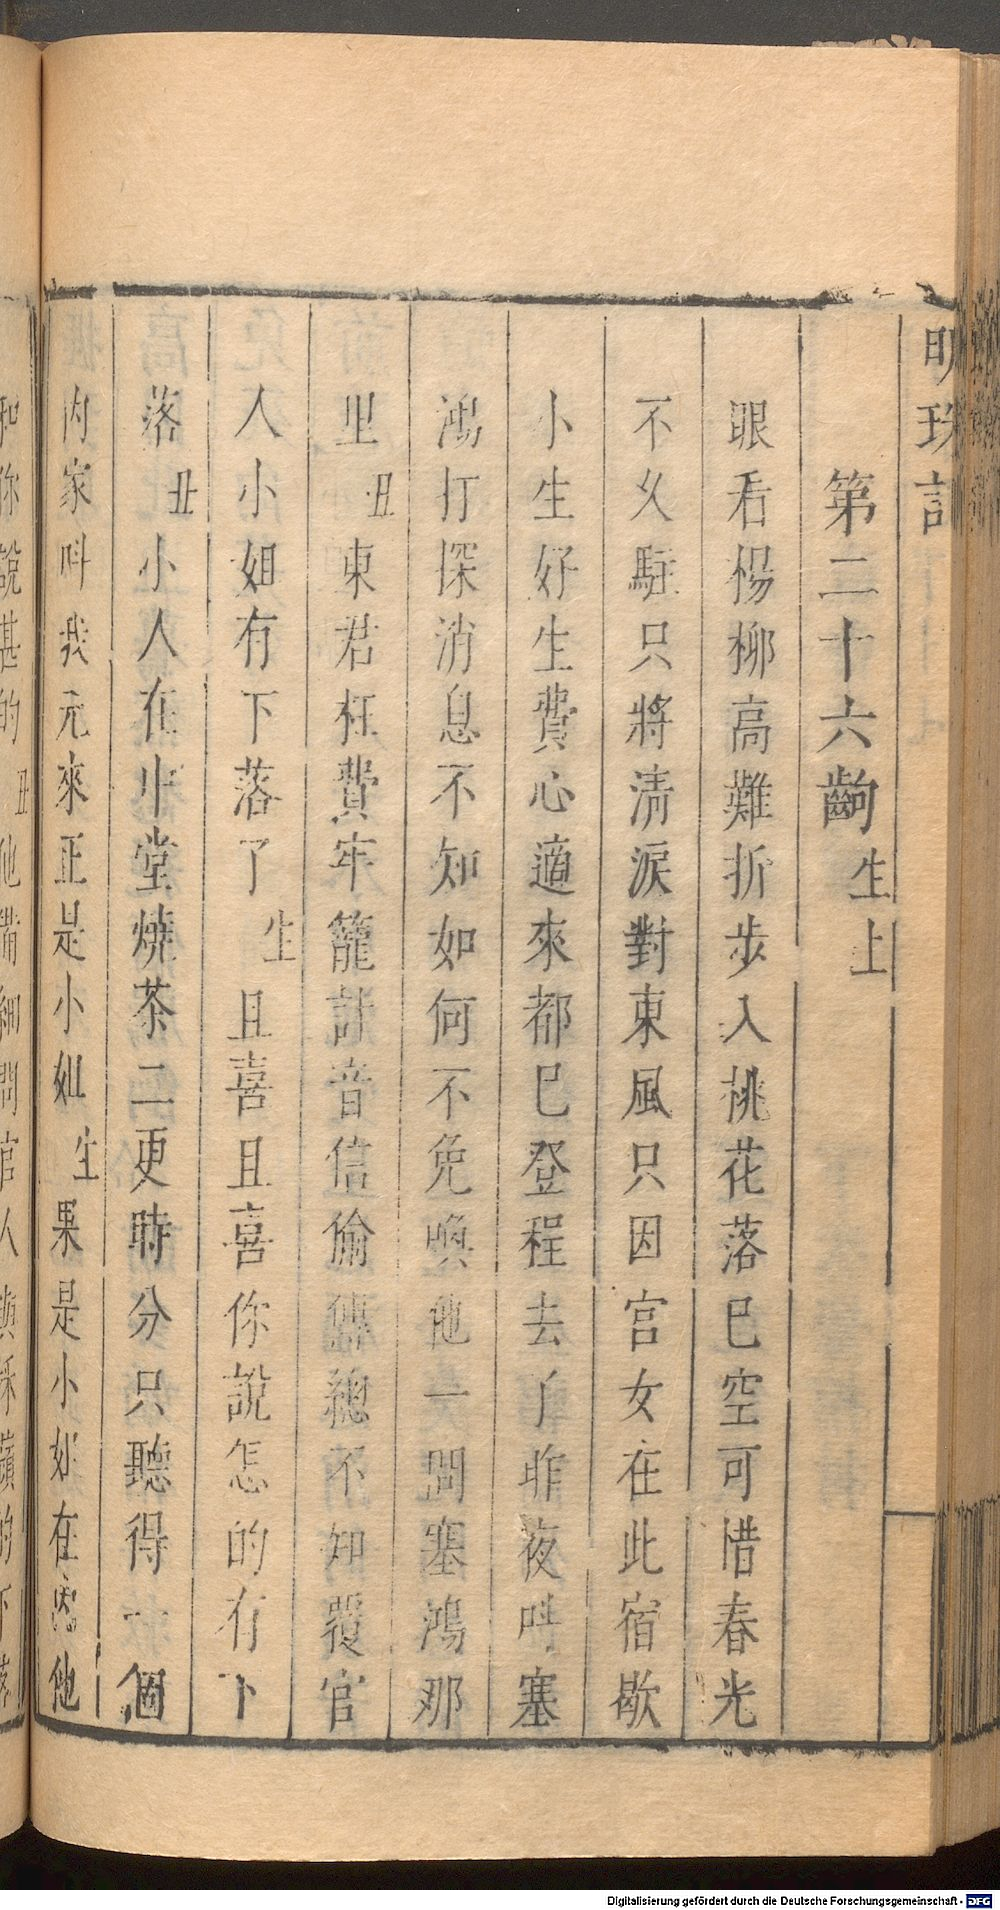 明珠記
第二十六齣 生上
眼看楊柳高難折步入桃花落巳空可惜春光
不久駐只將清淚對東風只因宮女在此宿歇
小生好生費心適來都巳登程去了昨夜叫塞
鴻打探消息不知如何不免喚他一問塞鴻那
里 丑 東君枉費牢籠計音信偷傳總不知覆官
人小姐有下落了 生 且喜且喜你說怎的有下
落 丑 小人在中堂燒茶二更時分只聽得一個
內家叫我元來正是小姐 生 果是小姐在
他
和你說甚的 丑 他備細問官人與採蘋的下落
Digitalisierung gefördert durch die Deutsche Forschungsgemeinschaft - DFG